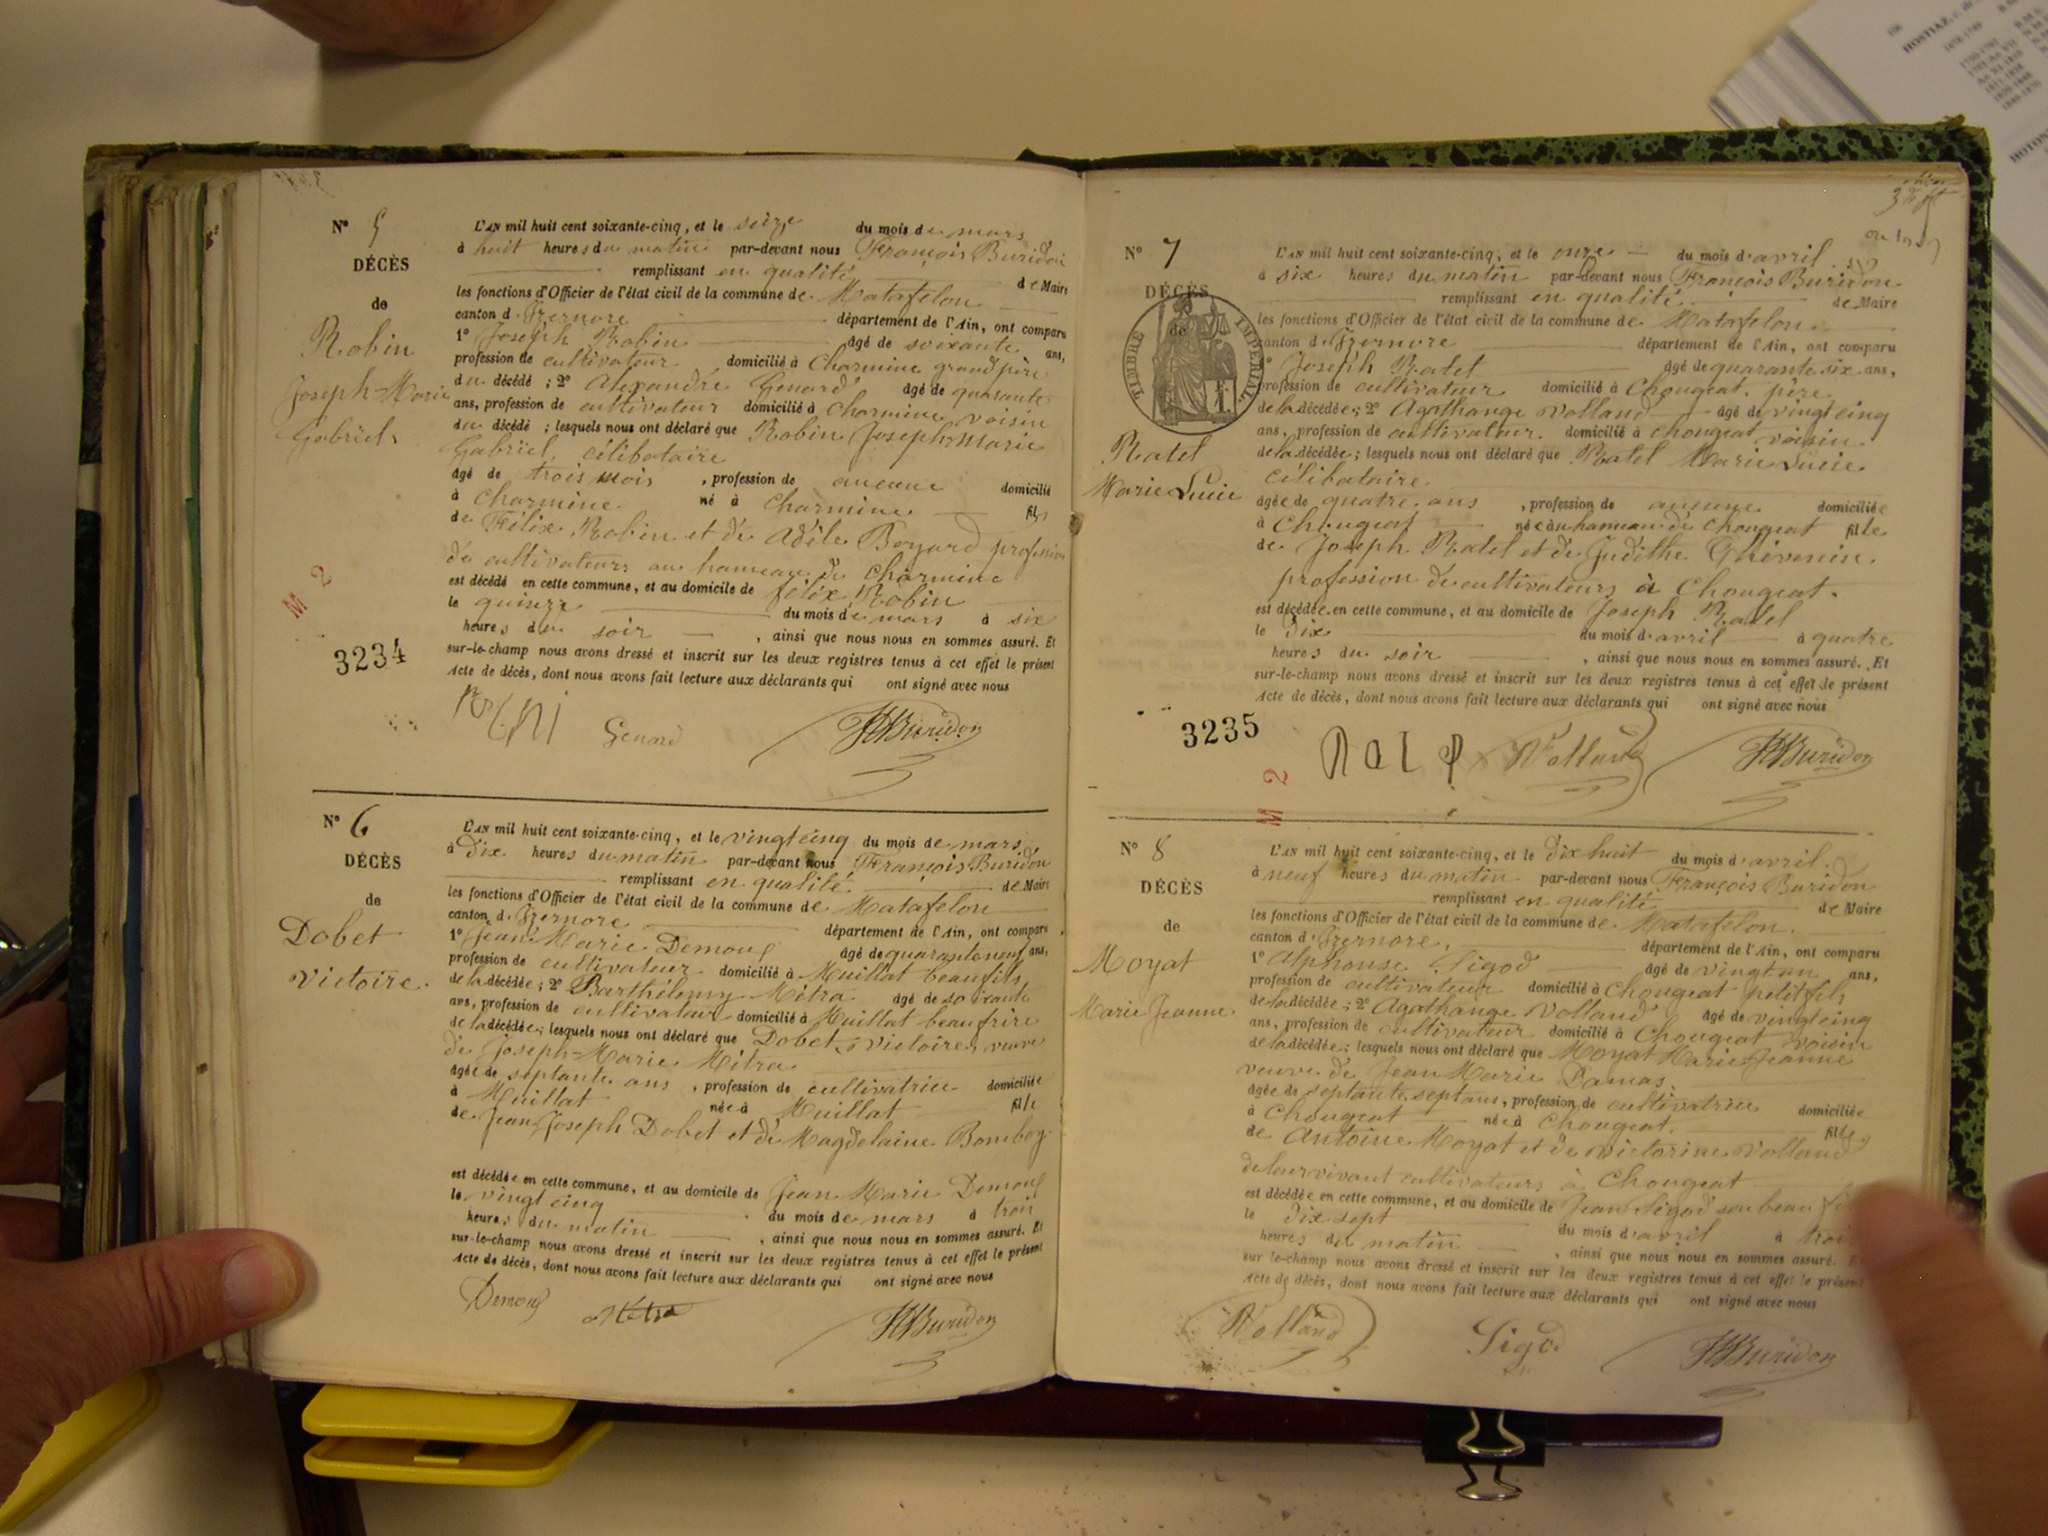 N° 5
DÉCÈS
de
Robin
Joseph-Marie
Gabriel.
M 2
3234
L'AN mil huit cent soixante-cinq, et le seize du mois de mars
à huit heures du matin par-devant nous François Buridon
remplissant en qualité de Maire
les fonctions d'Officier de l'état civil de la commune de Matafelon
canton d'Izernore département de l'Ain, ont comparu
1° Joseph Robin âgé de soixante ans,
profession de cultivateur domicilié à Charmine grand père
du décédé ; 2° Alexandre Genard âgé de quarante
ans, profession de cultivateur domicilié à Charmine voisin
du décédé ; lesquels nous ont déclaré que Robin Joseph-Marie
Gabriel, célibataire
âgé de trois mois , profession de aucune domicilié
à Charmine né à Charmine fils
de Félix Robin et de Adèle Boyard profession
de cultivateurs au hameau de Charmine
est décédé en cette commune, et au domicile de félix Robin
le quinze du mois de mars à six
heures du soir , ainsi que nous nous en sommes assuré. Et
sur-le-champ nous avons dressé et inscrit sur les deux registres tenus à cet effet le présent
Acte de décès, dont nous avons fait lecture aux déclarants qui ont signé avec nous
Genard Buridon
N° 6
DÉCÈS
de
Dobet
Victoire.
L'AN mil huit cent soixante-cinq, et le vingt cinq du mois de mars
à dix heures du matin par-devant nous François Buridon
remplissant en qualité de Maire
les fonctions d'Officier de l'état civil de la commune de Matafelon
canton d'Izernore département de l'Ain, ont comparu
1° Jean-Marie Demouf âgé de quarante neuf ans,
profession de cultivateur domicilié à Muillat beau fils
de la décédée ; 2° Barthélemy Mitra âgé de soixante
ans, profession de cultivateur domicilié à Muillat beau frère
de la décédée ; lesquels nous ont déclaré que Dobet Victoire, veuve
de Joseph-Marie Mitra
âgée de septante ans , profession de cultivatrice domiciliée
à Muillat née à Muillat fille
de Jean Joseph Dobet et de Magdelaine Bomboy.
est décédée en cette commune, et au domicile de Jean Marie Demouf
le vingt cinq du mois de mars à trois
heures du matin , ainsi que nous nous en sommes assuré. Et
sur-le-champ nous avons dressé et inscrit sur les deux registres tenus à cet effet le présent
Acte de décès, dont nous avons fait lecture aux déclarants qui ont signé avec nous
Demouf Mitra Buridon
N° 7
DÉCÈS
de
TIMBRE IMPÉRIAL
Ratel
Marie Lucie
3235
M 2
L'AN mil huit cent soixante-cinq, et le onze du mois d'avril
à six heures du matin par-devant nous François Buridon
remplissant en qualité de Maire
les fonctions d'Officier de l'état civil de la commune de Matafelon
canton d'Izernore département de l'Ain, ont comparu
1° Joseph Ratel âgé de quarante six ans,
profession de cultivateur domicilié à Chougeat. père
de la décédée ; 2° Agathange Volland âgé de vingt cinq
ans, profession de cultivateur. domicilié à Chougeat voisin
de la décédée ; lesquels nous ont déclaré que Ratel Marie Lucie
célibataire
âgée de quatre ans , profession de aucune domiciliée
à Chougeat née au hameau de Chougeat fille
de Joseph Ratel et de Judithe Thévenin.
profession de cultivateurs à Chougeat.
est décédée en cette commune, et au domicile de Joseph Ratel
le dix du mois d'avril à quatre
heures du soir , ainsi que nous nous en sommes assuré. Et
sur-le-champ nous avons dressé et inscrit sur les deux registres tenus à cet effet le présent
Acte de décès, dont nous avons fait lecture aux déclarants qui ont signé avec nous
Volland Buridon
N° 8
DÉCÈS
de
Moyat
Marie Jeanne.
L'AN mil huit cent soixante-cinq, et le dix huit du mois d'avril.
à neuf heures du matin par-devant nous François Buridon
remplissant en qualité de Maire
les fonctions d'Officier de l'état civil de la commune de Matafelon.
canton d'Izernore, département de l'Ain, ont comparu
1° Alphonse Sigod âgé de vingt un ans,
profession de cultivateur domicilié à Chougeat petit fils
de la décédée ; 2° Agathange Volland âgé de vingt cinq
ans, profession de cultivateur domicilié à Chougeat voisin
de la décédée ; lesquels nous ont déclaré que Moyat Marie Jeanne
veuve de Jean Marie Damas.
âgée de septante sept ans, profession de cultivatrice domiciliée
à Chougeat née à Chougeat. fille
de Antoine Moyat et de Victorine Volland
de leur vivant cultivateurs à Chougeat
est décédée en cette commune, et au domicile de Jean Sigod son beau
le dix sept du mois d'avril à
heures du matin , ainsi que nous nous en sommes assuré.
sur-le-champ nous avons dressé et inscrit sur les deux registres tenus à cet effet le présent
Acte de décès, dont nous avons fait lecture aux déclarants qui ont signé avec nous
Volland Sigod Buridon
HOSTIAZ